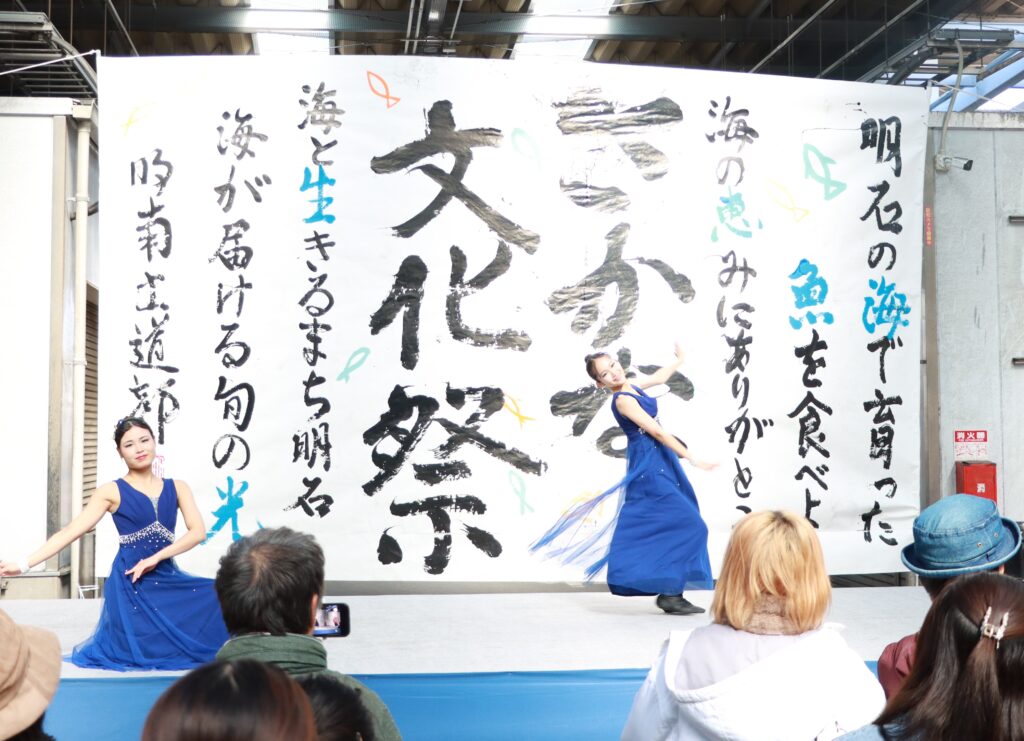 明石の海で育った
魚を食べよ
海の恵みにありがとう
さかな
文化祭
海と生きるまち明石
海が届ける旬の光
明南書道部
消火器